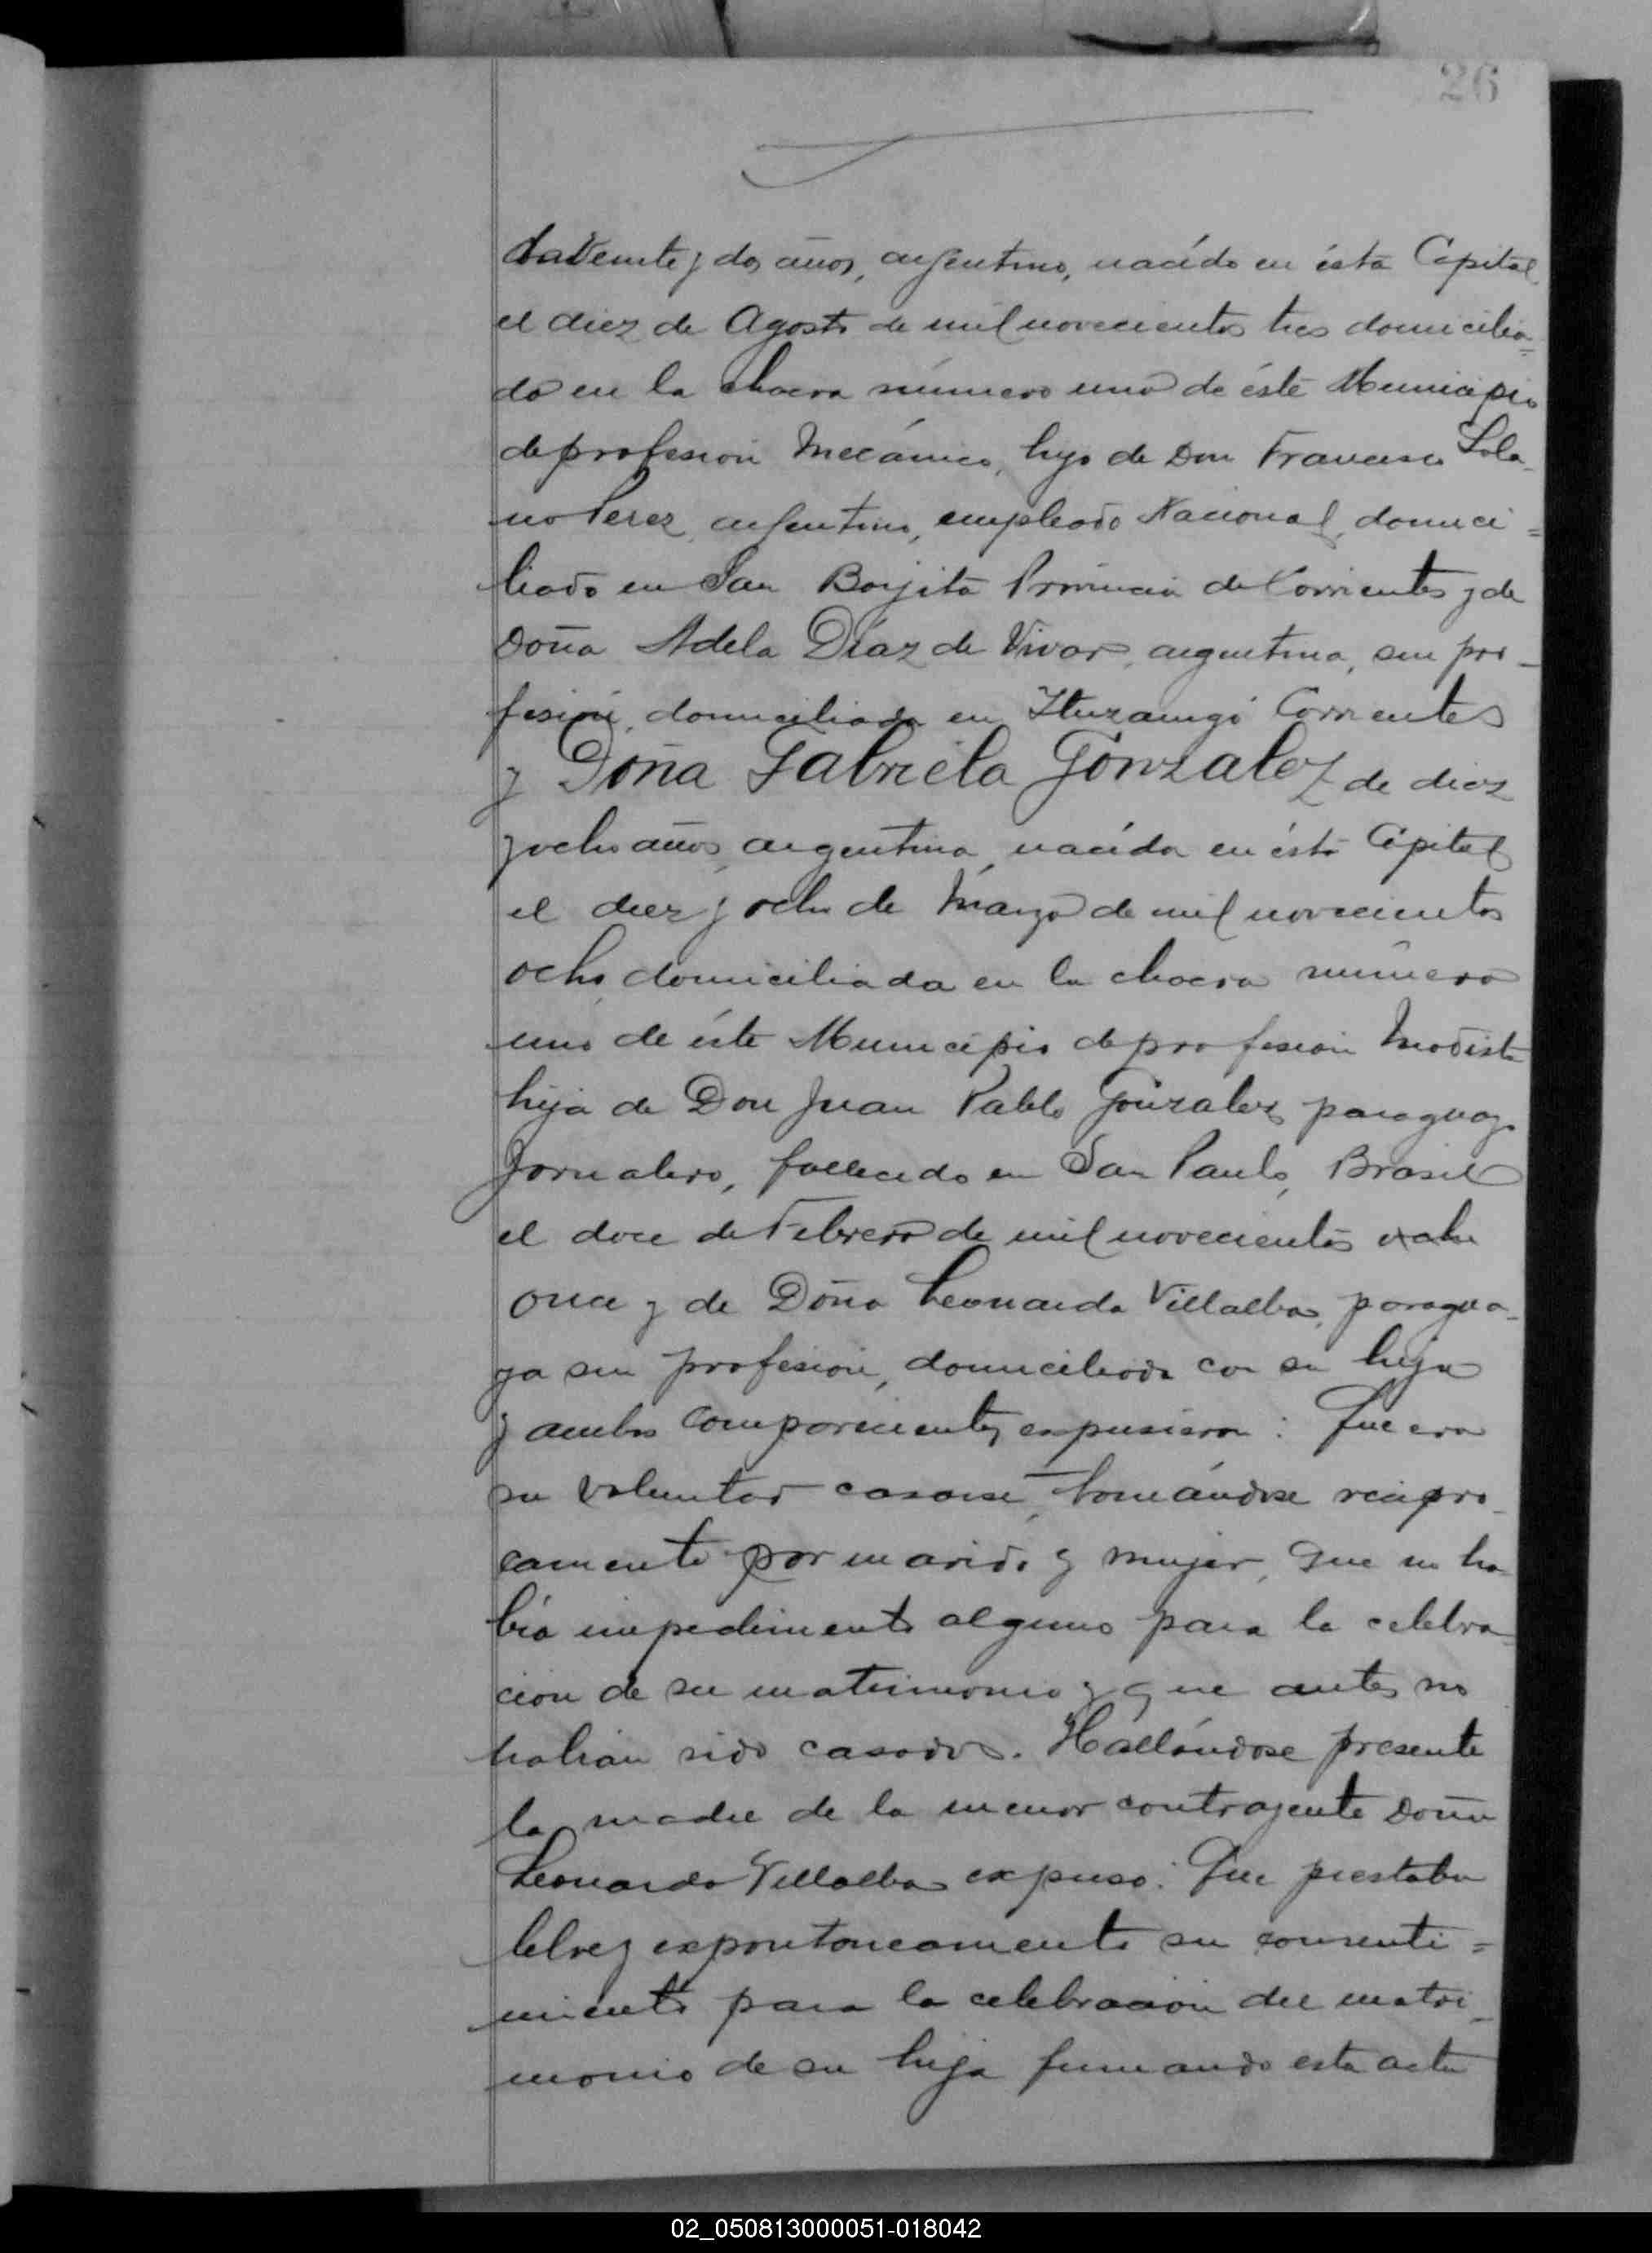 26
da veinte y dos años, argentino, nacido en ésta Capital
el diez de Agosto de mil novecientos tres domicilia=
do en la chacra número uno de éste Municipio
de profesión Mecánico, hijo de Don Francisco Sola-
no Perez, argentino, empleado Nacional, domici=
liado en San Borjita Provincia de Corrientes y de
Doña Adela Díaz de Vivar, argentina, sin pro-
fesión, domiciliada en Ituzaingó Corrientes
y Doña Gabriela Gonzalez de diez
y ocho años, argentina, nacida en ésta Capital
el diez y ocho de Marzo de mil novecientos
ocho, domiciliada en la chacra número
uno de éste Municipio de profesión Modista
hija de Don Juan Pablo Gonzalez paraguayo
Jornalero, fallecido en San Paulo, Brasil
el doce de Febrero de mil novecientos ocho
once y de Doña Leonarda Villalba, paragua-
ya sin profesión, domiciliada con su hija
y ambos comparecientes expusieron: Que era
su voluntad casarse, tomándose recipro-
camente por marido y mujer, que no ha-
bía impedimento alguno para la celebra-
ción de su matrimonio y que antes no
habían sido casados. Hallándose presente
la madre de la menor contrayente Doña
Leonarda Villalba expuso: Que prestaba
libre y expontaneamente su consenti=
miento para la celebración del matri-
monio de su hija firmando esta acta
02_050813000051-018042